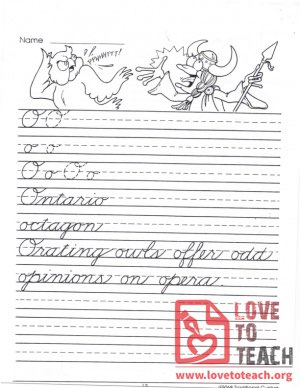 Name
O O
o o
O o O o
Ontario
octagon
Orating owls offer odd
opinions on opera.
LOVE
TO
TEACH
www.lovetoteach.org